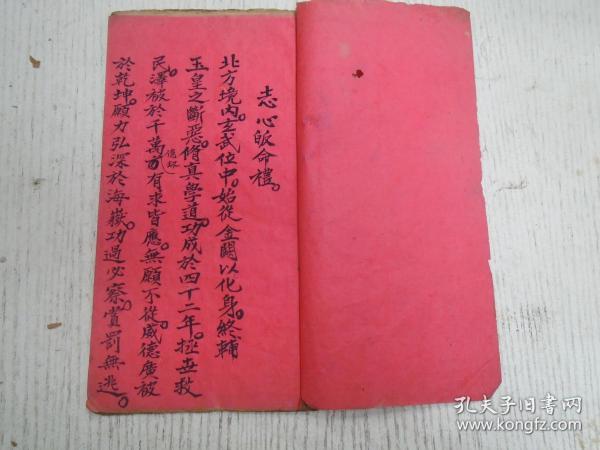 志心皈命禮。
北方境内。玄武位中。始從金闕以化身。終輔
玉皇之斷惡。脩真學道。功成於四十二年。拯世救
民。澤被於千萬
有求皆應。無願不從。威德廣被
於乾坤。願力弘深於海嶽。功過必察。賞罰無逃。
孔夫子旧书网
www.kongfz.com